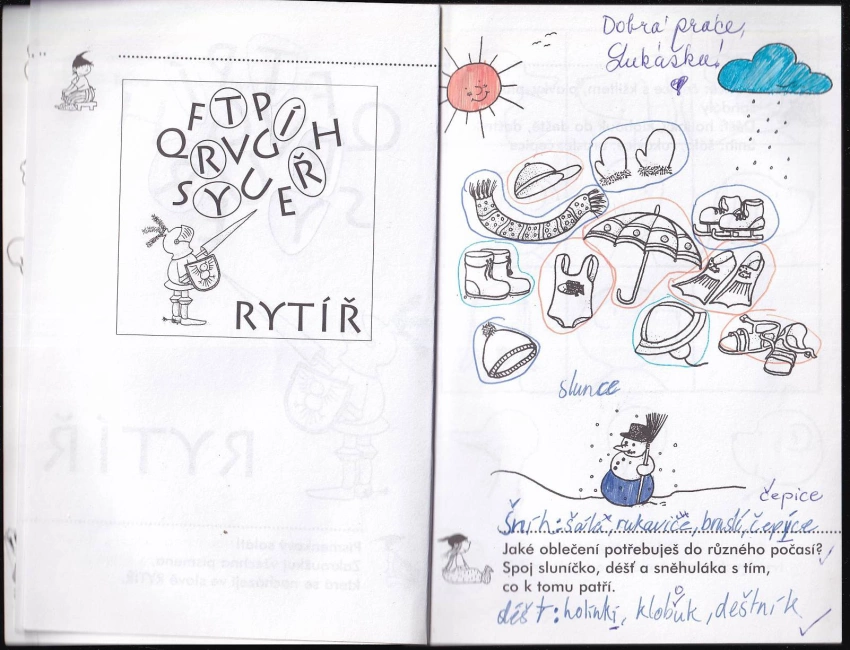 QFTPÍH
RVG
SYUEŘ
RYTÍŘ
Dobrá práce,
Lukášku!
slunce
čepice
Šníh: šálá, rukaviče, brusli, čepyce
Jaké oblečení potřebuješ do různého počasí?
Spoj sluníčko, déšť a sněhuláka s tím,
co k tomu patří.
déšť: holinki, klobůk, deštník